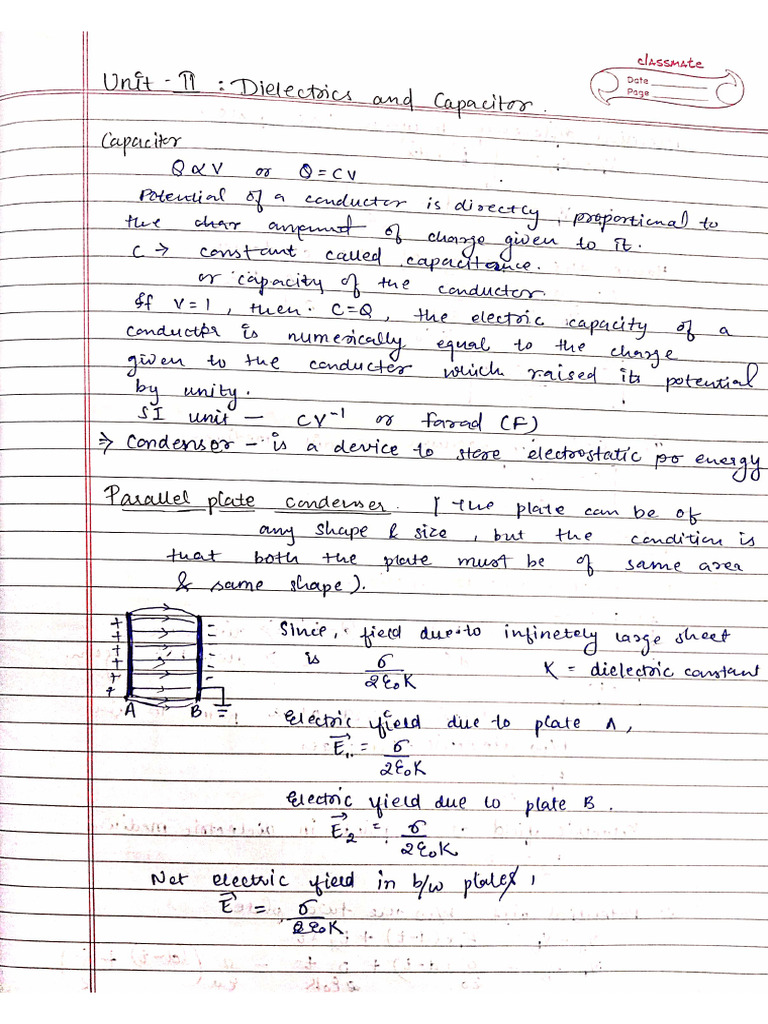 classmate
Date
Page
Unit - II : Dielectrics and Capacitor.
Capacitor
Q ∝ V or Q = CV
Potential of a conductor is directly proportional to
the char amount of charge given to it.
C → constant called capacitance.
or capacity of the conductor.
If V = 1, then C = Q, the electric capacity of a
conductor is numerically equal to the charge
given to the conductor which raised its potential
by unity.
SI unit — CV⁻¹ or farad (F)
⇒ Condensor - is a device to store electrostatic po energy
Parallel plate condenser. [ the plate can be of
any shape & size, but the condition is
that both the plate must be of same area
& same shape).
Since, field due to infinetely large sheet
is σ/2ε₀K K = dielectric constant
+ + + + + +
- - - - -
A B
Electric field due to plate A,
E⃗₁ = σ/2ε₀K
Electric field due to plate B.
E⃗₂ = σ/2ε₀K
Net electric field in b/w plates,
E⃗ = σ/2ε₀K